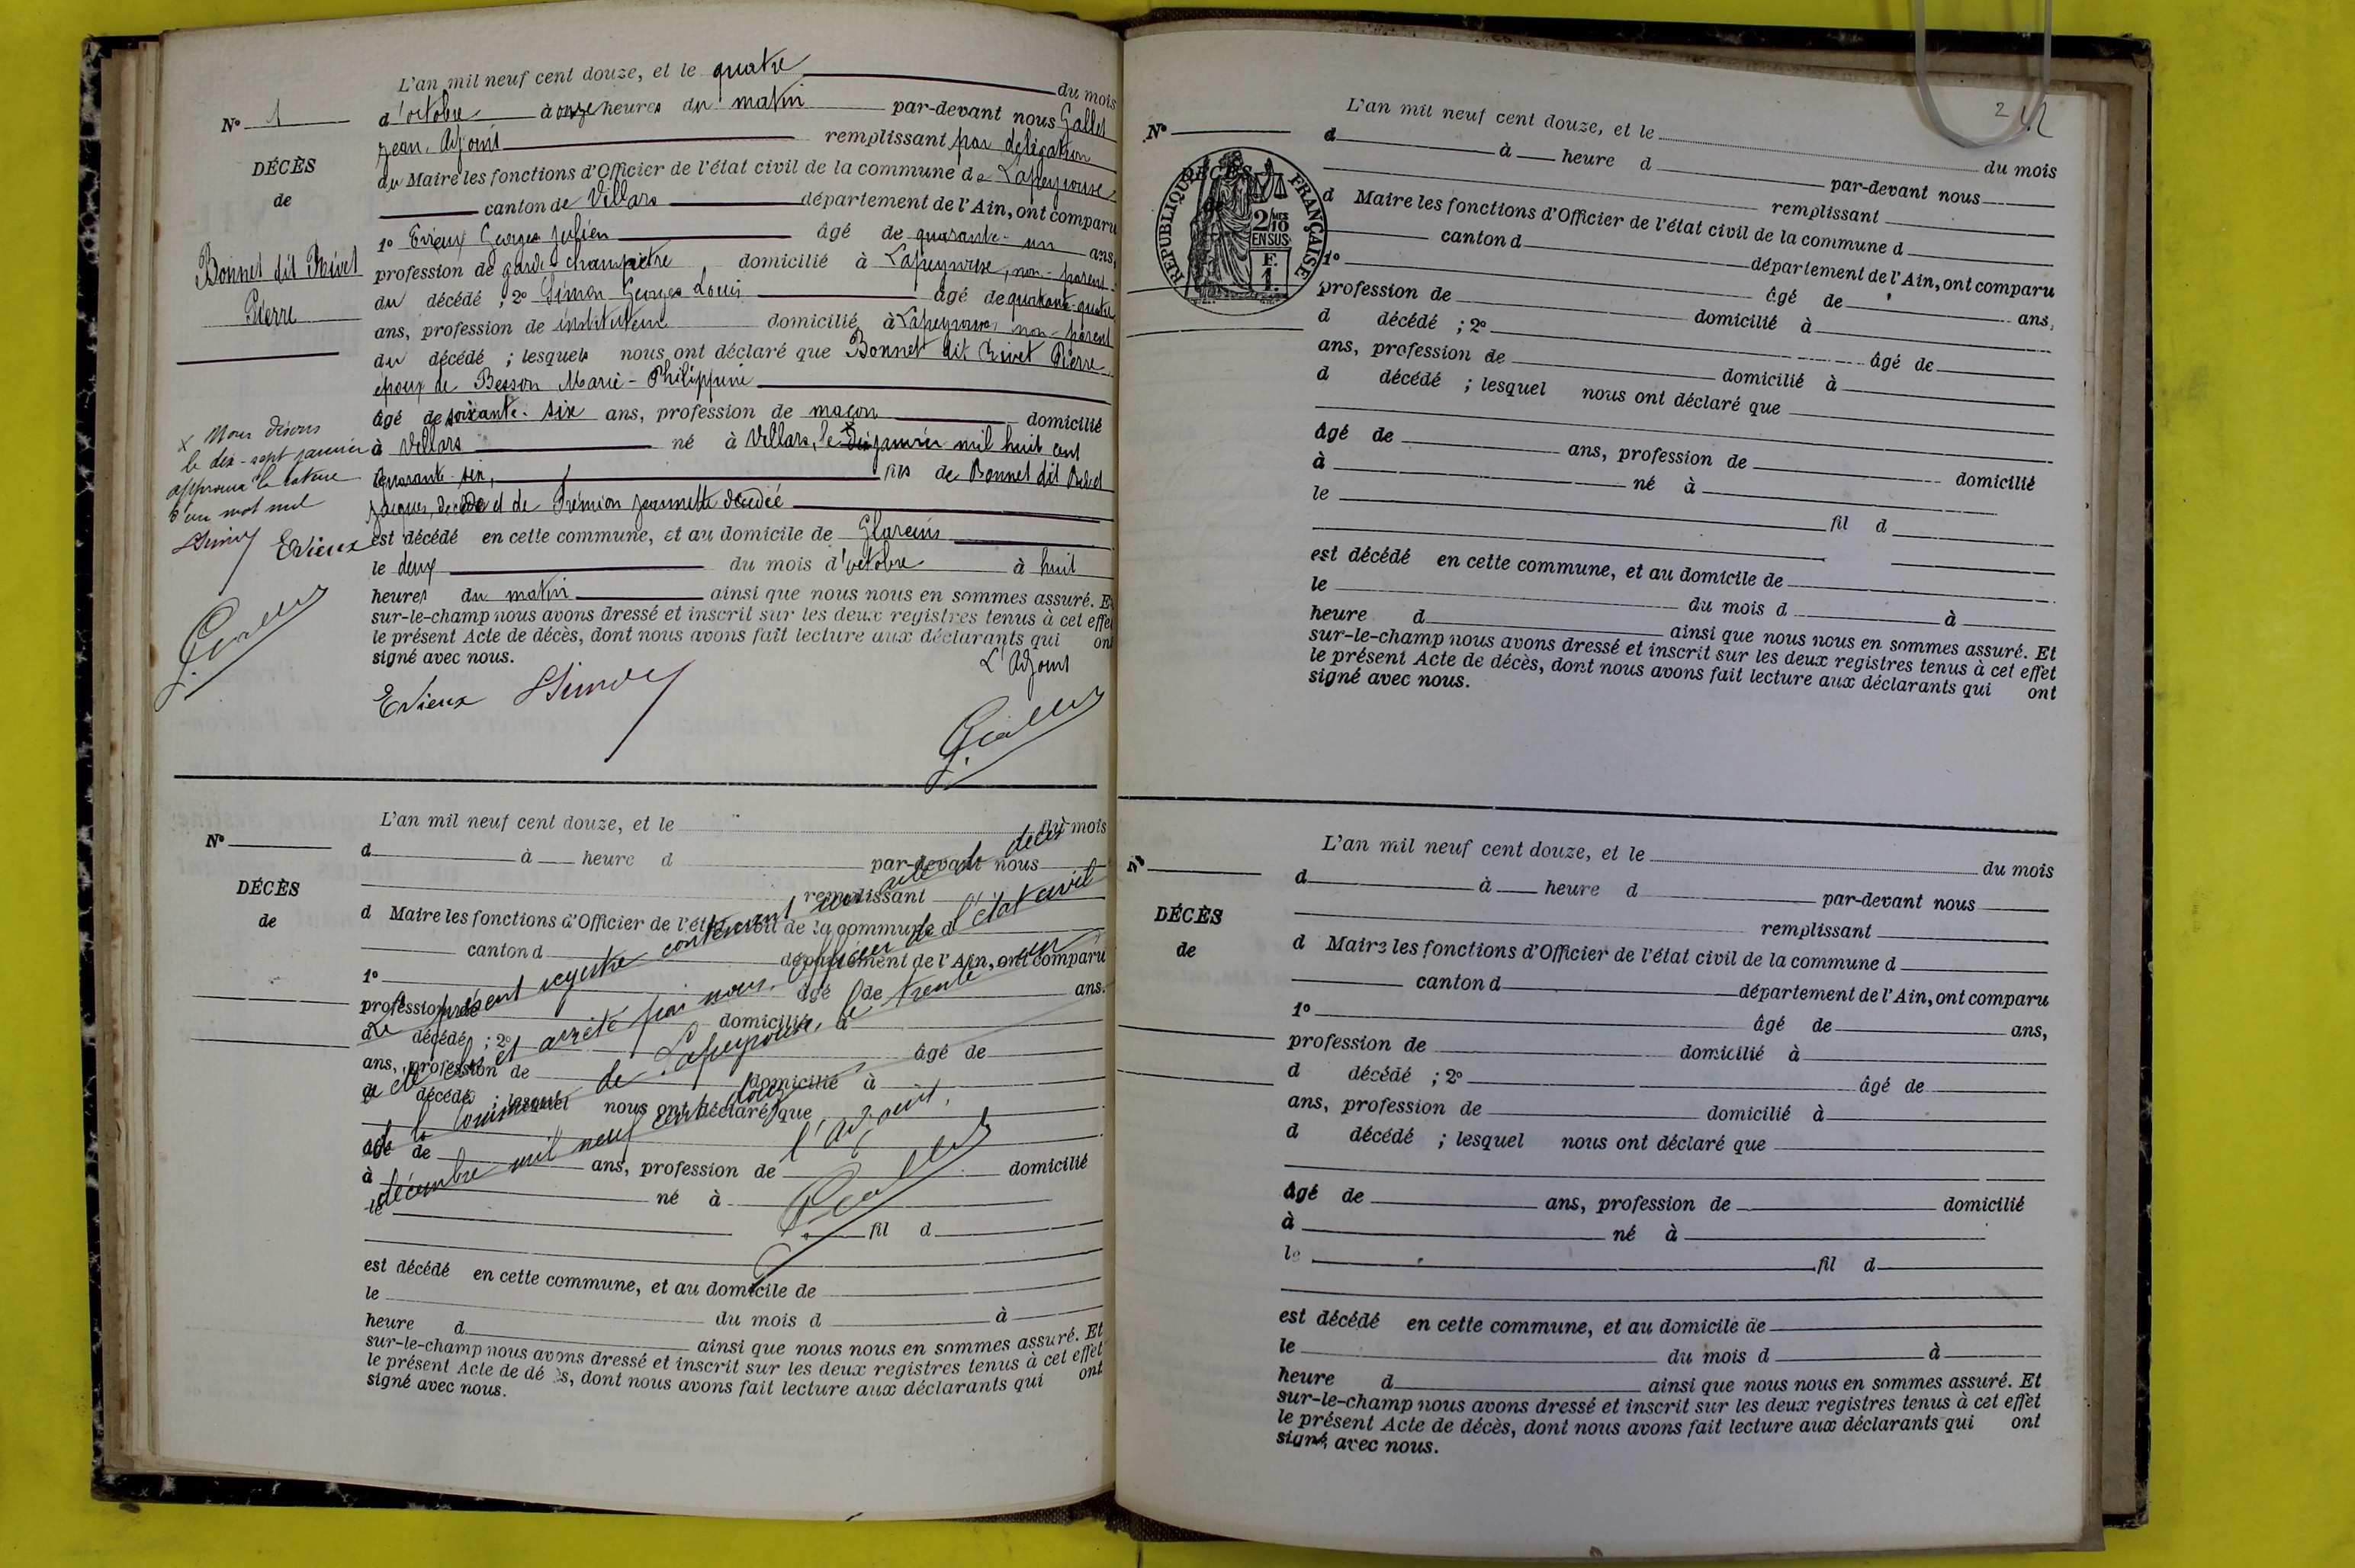 L'an mil neuf cent douze, et le quatre du mois
d'octobre à onze heures du matin par-devant nous Gallet
Jean, Adjoint remplissant par délégation
du Maire les fonctions d'Officier de l'état civil de la commune de Lapeyrouse
canton de Villars département de l'Ain, ont comparu
1° Evieux Georges Julien âgé de quarante-un ans,
profession de garde champêtre domicilié à Lapeyrouse, non-parent
du décédé ; 2° Simon Georges Louis âgé de quarante-quatre
ans, profession de instituteur domicilié à Lapeyrouse, non-parent
du décédé ; lesquels nous ont déclaré que Bonnet dit Rivet Pierre
époux de Besson Marie-Philippine
âgé de soixante-six ans, profession de maçon domicilié
à Villars né à Villars, le janvier mil huit cent
quarante-six, fils de Bonnet dit Rivet
Jacques, décédé et de Frémion Jeannette décédée
est décédé en cette commune, et au domicile de Glareins
le deux du mois d'octobre à huit
heures du matin ainsi que nous nous en sommes assuré. Et
sur-le-champ nous avons dressé et inscrit sur les deux registres tenus à cet effet
le présent Acte de décès, dont nous avons fait lecture aux déclarants qui ont
signé avec nous.
L'Adjoint
Evieux Simon
N° 1
DÉCÈS
de
Bonnet dit Rivet
Pierre
x Nous disons
le dix-sept janvier
approuvé la rature
d'un mot nul
Simon Evieux
N°
DÉCÈS
de
L'an mil neuf cent douze, et le du mois
d à heure d par-devant nous
remplissant
d Maire les fonctions d'Officier de l'état civil de la commune d
canton d département de l'Ain, ont comparu
1° âgé de ans,
profession de domicilié à
d décédé ; 2° âgé de
ans, profession de domicilié à
d décédé ; lesquel nous ont déclaré que
âgé de ans, profession de domicilié
à né à
le fil d
est décédé en cette commune, et au domicile de
le du mois d à
heure d ainsi que nous nous en sommes assuré. Et
sur-le-champ nous avons dressé et inscrit sur les deux registres tenus à cet effet
le présent Acte de décès, dont nous avons fait lecture aux déclarants qui ont
signé avec nous.
Le présent registre contenant un acte de décès
a été clos et arrêté par nous, officier de l'état civil
de la commune de Lapeyrouse, le trente un
décembre mil neuf cent douze
l'adjoint,
N°
DÉCÈS
RÉPUBLIQUE FRANÇAISE
2/10 MES
EN SUS
F.
1.
L'an mil neuf cent douze, et le du mois
d à heure d par-devant nous
remplissant
d Maire les fonctions d'Officier de l'état civil de la commune d
canton d département de l'Ain, ont comparu
1° âgé de ans,
profession de domicilié à
d décédé ; 2° âgé de
ans, profession de domicilié à
d décédé ; lesquel nous ont déclaré que
âgé de ans, profession de domicilié
à né à
le fil d
est décédé en cette commune, et au domicile de
le du mois d à
heure d ainsi que nous nous en sommes assuré. Et
sur-le-champ nous avons dressé et inscrit sur les deux registres tenus à cet effet
le présent Acte de décès, dont nous avons fait lecture aux déclarants qui ont
signé avec nous.
N°
DÉCÈS
de
L'an mil neuf cent douze, et le du mois
d à heure d par-devant nous
remplissant
d Maire les fonctions d'Officier de l'état civil de la commune d
canton d département de l'Ain, ont comparu
1° âgé de ans,
profession de domicilié à
d décédé ; 2° âgé de
ans, profession de domicilié à
d décédé ; lesquel nous ont déclaré que
âgé de ans, profession de domicilié
à né à
le fil d
est décédé en cette commune, et au domicile de
le du mois d à
heure d ainsi que nous nous en sommes assuré. Et
sur-le-champ nous avons dressé et inscrit sur les deux registres tenus à cet effet
le présent Acte de décès, dont nous avons fait lecture aux déclarants qui ont
signé avec nous.